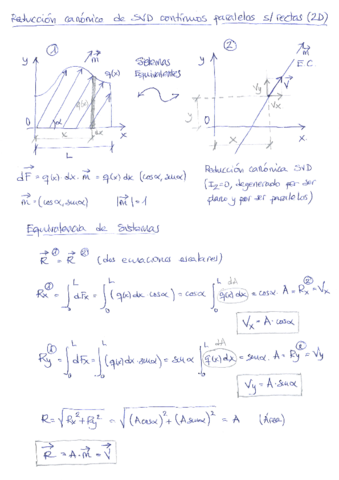 Reducción canónica de SVD continuos paralelos s/rectas (2D)
① ②
y m⃗ q(x) Sistemas Equivalentes y m⃗ E.C.
q(x) Vy V⃗ Vx
0 α x dx x y 0 x x
L
dF⃗ = q(x) dx · m⃗ = q(x) dx (cosα, senα)
m⃗ = (cosα, senα) |m⃗| = 1
Reducción canónica SVD
(I₂=0, degenerado por ser
plano y por ser paralelos)
Equivalencia de Sistemas
R⃗^① = R⃗^② (dos ecuaciones escalares)
Rx^① = ∫₀^L dFx = ∫₀^L (q(x) dx cosα) = cosα ∫₀^L q(x) dx = cosα · A = Rx^② = Vx
dA
Vx = A·cosα
Ry^① = ∫₀^L dFy = ∫₀^L (q(x) dx · senα) = senα ∫₀^L q(x) dx = senα · A = Ry^② = Vy
dA
Vy = A·senα
R = √(Rx² + Ry²) = √((A cosα)² + (A senα)²) = A (Área)
R⃗ = A·m⃗ = V⃗